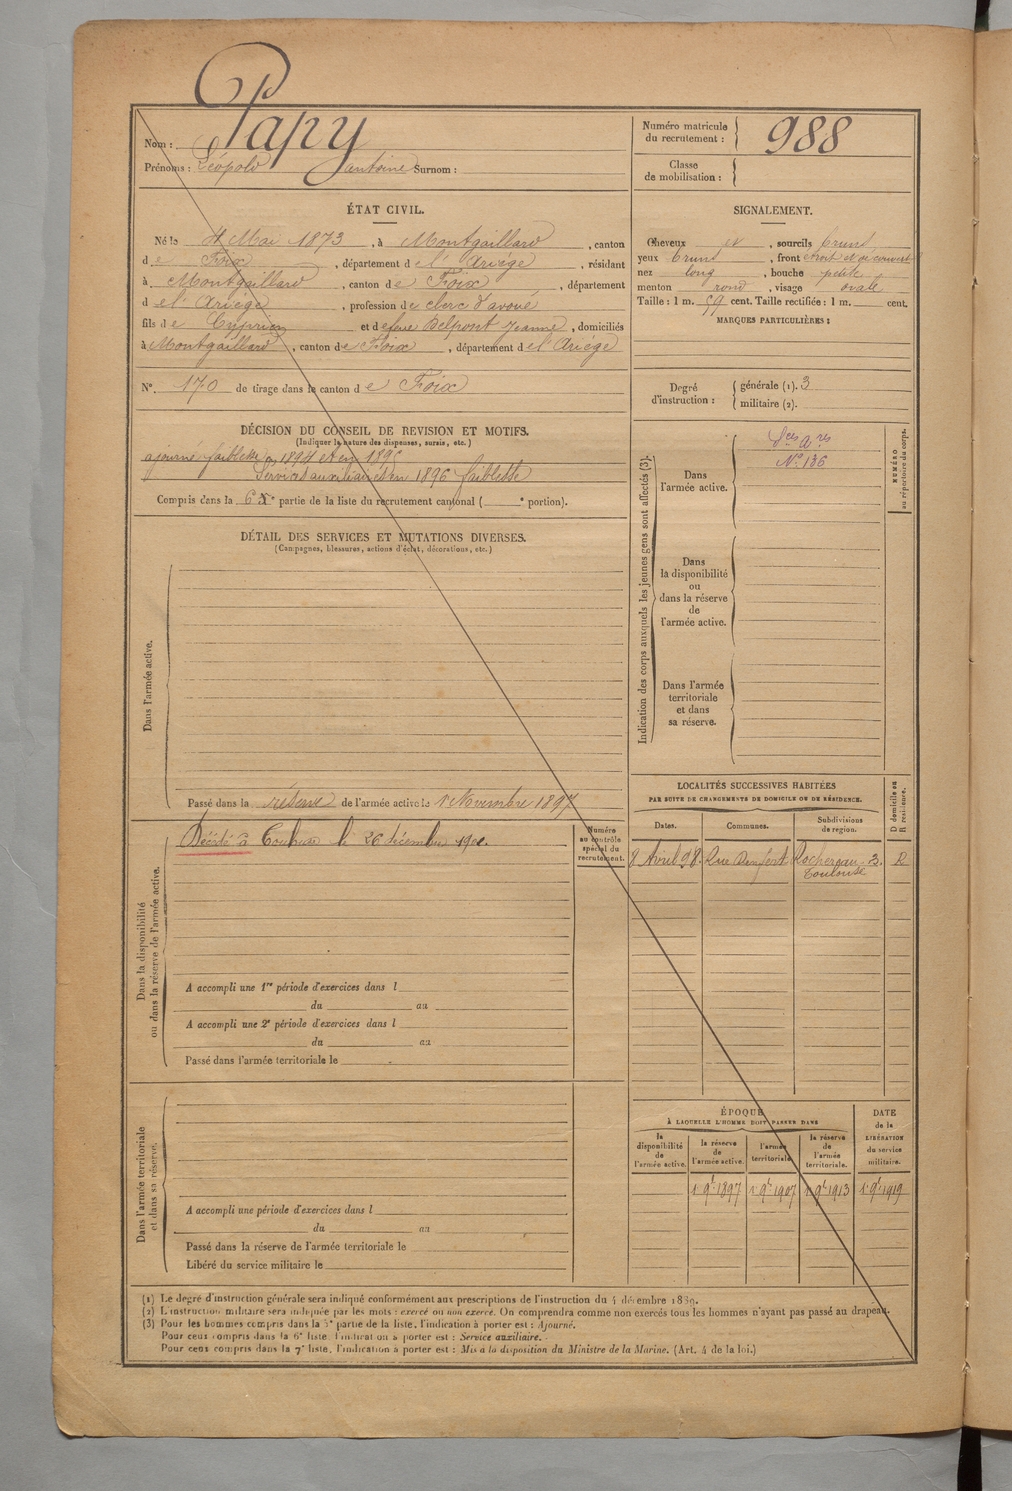 Papy
Nom :
Prénoms : Léopold Antoine Surnom :
Numéro matricule du recrutement : 988
Classe de mobilisation :
ÉTAT CIVIL.
Né le 4 Mai 1873, à Montgaillard, canton
de Foix, département de l'Ariège, résidant
à Montgaillard, canton de Foix, département
de l'Ariège, profession de clerc d'avoué
fils de Cyprien et de feue Delpont Jeanne, domiciliés
à Montgaillard, canton de Foix, département de l'Ariège
N° 170 de tirage dans le canton de Foix
SIGNALEMENT.
Cheveux et, sourcils bruns
yeux bruns, front étroit et découvert
nez long, bouche petite
menton rond, visage ovale
Taille : 1 m. 59 cent. Taille rectifiée : 1 m. cent.
MARQUES PARTICULIÈRES :
Degré d'instruction : générale (1). 3
militaire (2).
DÉCISION DU CONSEIL DE REVISION ET MOTIFS.
(Indiquer la nature des dispenses, sursis, etc.)
ajourné faiblesse en 1894 et en 1895
Services auxiliaires en 1896 faiblesse
Compris dans la 6e partie de la liste du recrutement cantonal ( e portion).
DÉTAIL DES SERVICES ET MUTATIONS DIVERSES.
(Campagnes, blessures, actions d'éclat, décorations, etc.)
Dans l'armée active.
Passé dans la réserve de l'armée active le 1 Novembre 1897
Indication des corps auxquels les jeunes gens sont affectés (3).
Dans l'armée active.
Sces ares
N° 136
NUMÉRO au répertoire du corps.
Dans la disponibilité ou dans la réserve de l'armée active.
Dans l'armée territoriale et dans sa réserve.
Dans la disponibilité ou dans la réserve de l'armée active.
Décédé à Toulouse le 26 décembre
Numéro au contrôle spécial du recrutement.
A accompli une 1re période d'exercices dans l
du au
A accompli une 2e période d'exercices dans l
du au
Passé dans l'armée territoriale le
LOCALITÉS SUCCESSIVES HABITÉES
PAR SUITE DE CHANGEMENTS DE DOMICILE OU DE RÉSIDENCE.
Dates. Communes. Subdivisions de region. D domicile ou R résidence.
8 Avril 98. Rue Denfert Rochereau. 3. R
Toulouse
ÉPOQUE
À LAQUELLE L'HOMME DOIT PASSER DANS
DATE de la LIBÉRATION du service militaire.
la disponibilité de l'armée active.
la réserve de l'armée active.
l'armée territoriale.
la réserve de l'armée territoriale.
1 9b 1897 1 9b 1907 1 9b 1913 1 9b 1919
Dans l'armée territoriale et dans sa réserve.
A accompli une période d'exercices dans l
du au
Passé dans la réserve de l'armée territoriale le
Libéré du service militaire le
(1) Le degré d'instruction générale sera indiqué conformément aux prescriptions de l'instruction du 4 décembre 1889.
(2) L'instruction militaire sera indiquée par les mots : exercé ou non exercé. On comprendra comme non exercés tous les hommes n'ayant pas passé au drapeau.
(3) Pour les hommes compris dans la 5e partie de la liste, l'indication à porter est : Ajourné.
Pour ceux compris dans la 6e liste, l'indication à porter est : Service auxiliaire.
Pour ceux compris dans la 7e liste, l'indication à porter est : Mis à la disposition du Ministre de la Marine. (Art. 4 de la loi.)